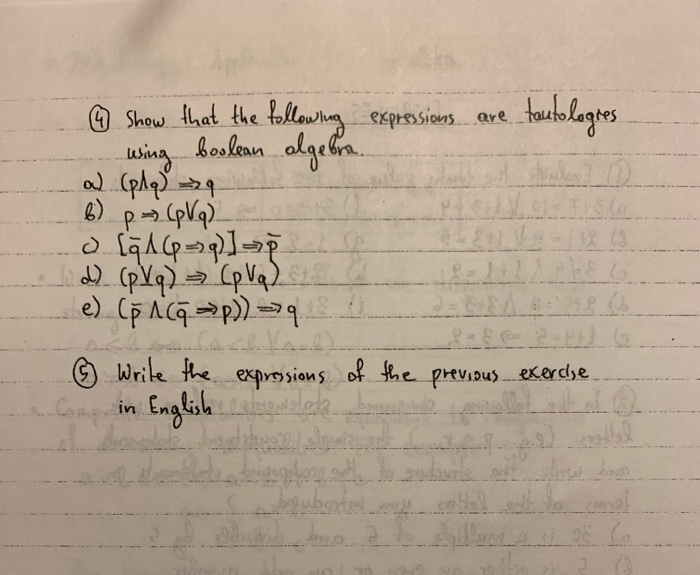 ④ Show that the following expressions are tautologres
using boolean algebra.
a) (p∧q) ⇒ q
b) p ⇒ (p∨q)
c) [q̄ ∧ (p ⇒ q)] ⇒ p̄
d) (p∨q) ⇒ (p∨q)
e) (p̄ ∧ (q̄ ⇒ p)) ⇒ q
⑤ Write the expressions of the previous exercise
in English